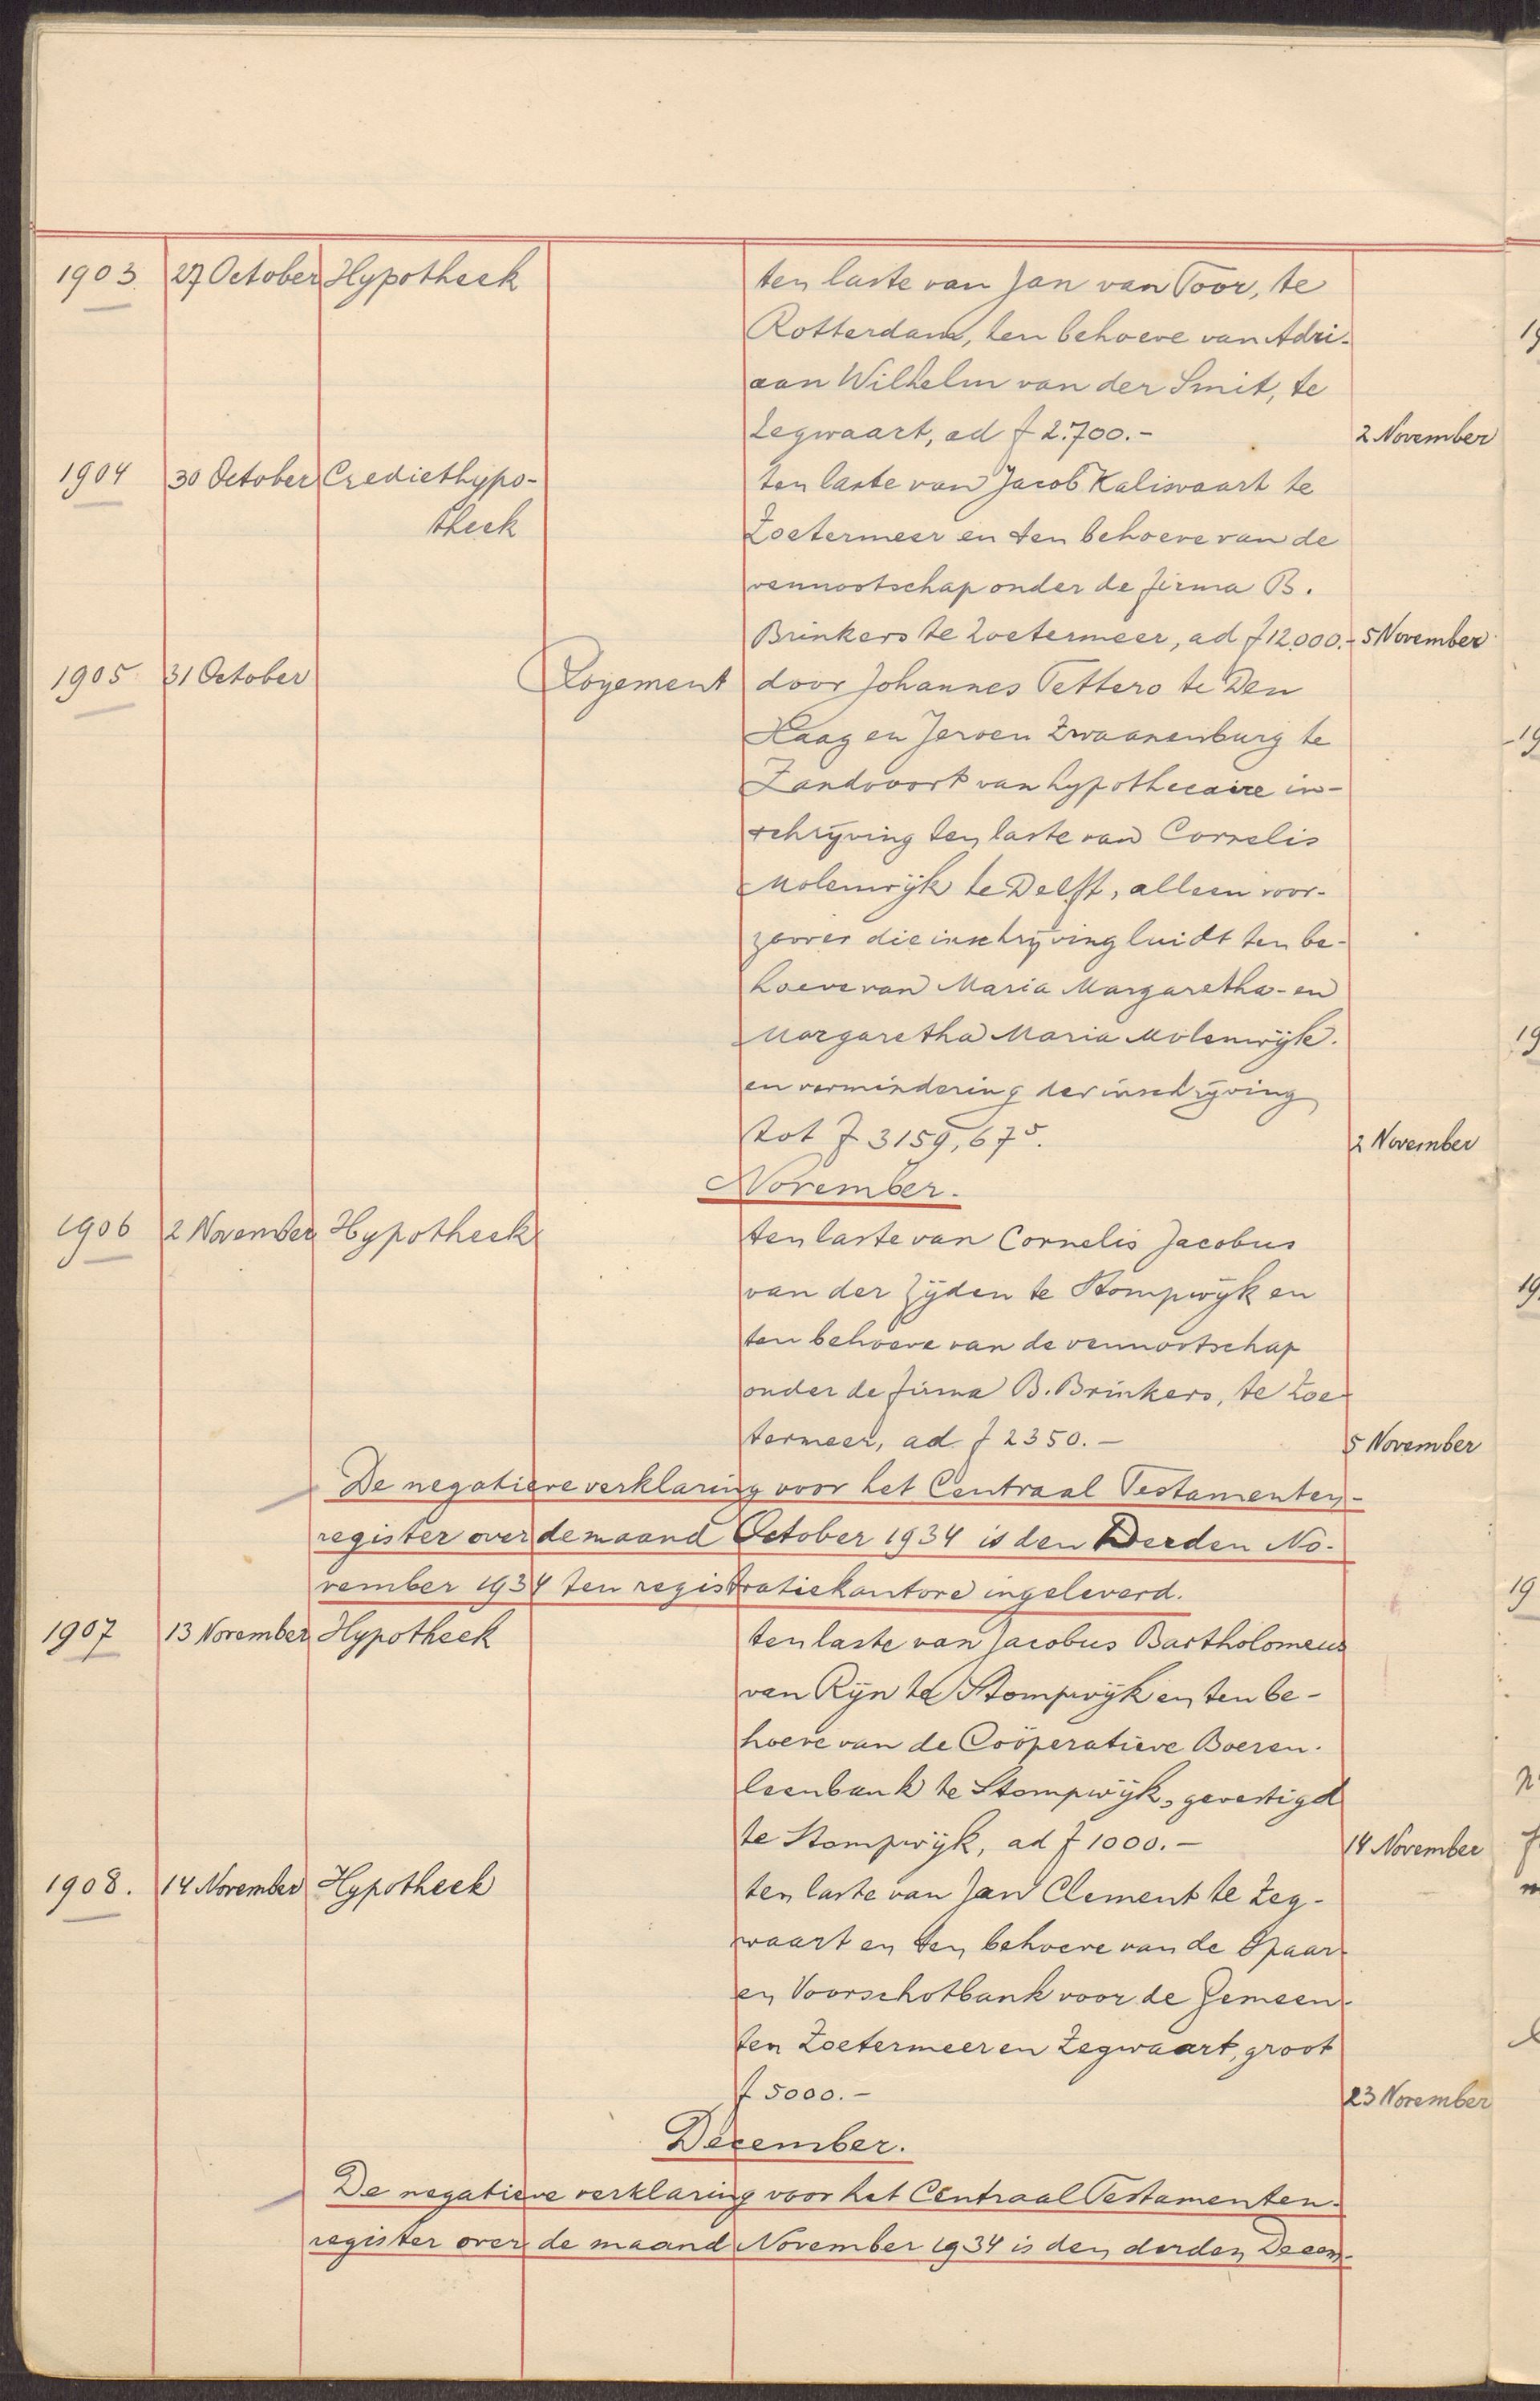 1903. 27 October Hypotheek ten laste van Jan van Toor, te
Rotterdam, ten behoeve van Adri-
aan Wilhelm van der Smit, te
Zegwaart, ad f 2.700.- 2 November
1904 30 October Crediethypo- ten laste van Jacob Kaliswaart te
theek Zoetermeer en ten behoeve van de
vennootschap onder de firma B.
Brinkers te Zoetermeer, ad f 12.000.- 5 November
1905 31 October Royement door Johannes Tettero te Den
Haag en Jeroen Zwaanenburg te
Zandvoort van hypothecaire in-
schrijving ten laste van Cornelis
Molenwijk te Delft, alleen voor-
zoover die inschrijving luidt ten be-
hoeve van Maria Margaretha- en
Margaretha Maria Molenwijk.
en vermindering der inschrijving
tot f 3159,67⁵. 2 November
November.
1906 2 November Hypotheek ten laste van Cornelis Jacobus
van der Zijden te Stompwijk en
ten behoeve van de vennootschap
onder de firma B. Brinkers, te Zoe-
termeer, ad f 2350.- 5 November
De negatieve verklaring voor het Centraal Testamenten-
register over de maand October 1934 is den Derden No-
vember 1934 ten registratiekantore ingeleverd.
1907 13 November Hypotheek ten laste van Jacobus Bartholomeus
van Rijn te Stompwijk en ten be-
hoeve van de Coöperatieve Boeren-
leenbank te Stompwijk, gevestigd
te Stompwijk, ad f 1000.- 14 November
1908. 14 November Hypotheek ten laste van Jan Clement te Zeg-
waart en ten behoeve van de Spaar-
en Voorschotbank voor de Gemeen-
ten Zoetermeer en Zegwaart, groot
f 5000.- 23 November
December.
De negatieve verklaring voor het Centraal Testamenten-
register over de maand November 1934 is den derden Decem-